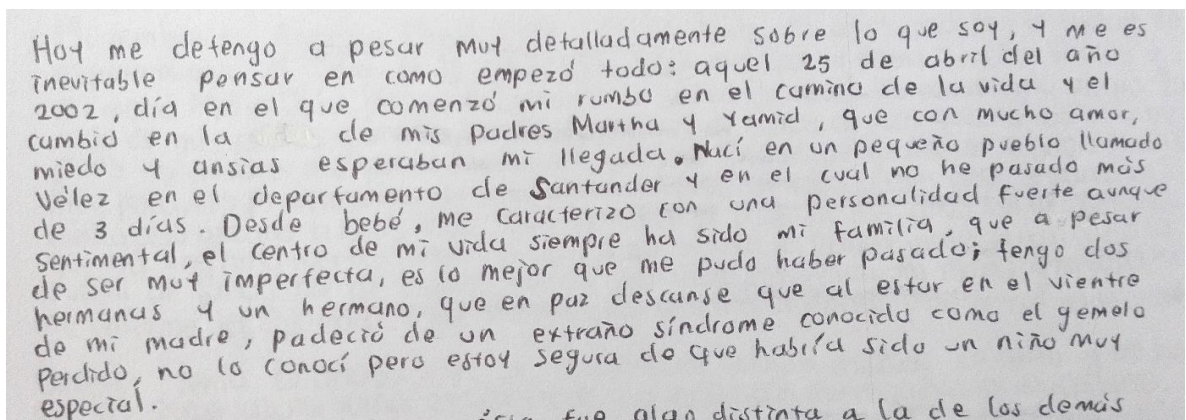 Hoy me detengo a pesar muy detalladamente sobre lo que soy, y me es
inevitable pensar en como empezó todo: aquel 25 de abril del año
2002, día en el que comenzó mi rumbo en el camino de la vida y el
cambio en la de mis padres Martha y Yamid, que con mucho amor,
miedo y ansias esperaban mi llegada. Nací en un pequeño pueblo llamado
Vélez en el departamento de Santander y en el cual no he pasado más
de 3 días. Desde bebé, me caracterizo con una personalidad fuerte aunque
sentimental, el centro de mi vida siempre ha sido mi familia, que a pesar
de ser muy imperfecta, es lo mejor que me pudo haber pasado; tengo dos
hermanas y un hermano, que en paz descanse que al estar en el vientre
de mi madre, padeció de un extraño síndrome conocido como el gemelo
perdido, no lo conocí pero estoy segura de que habría sido un niño muy
especial.
fue algo distinta a la de los demás